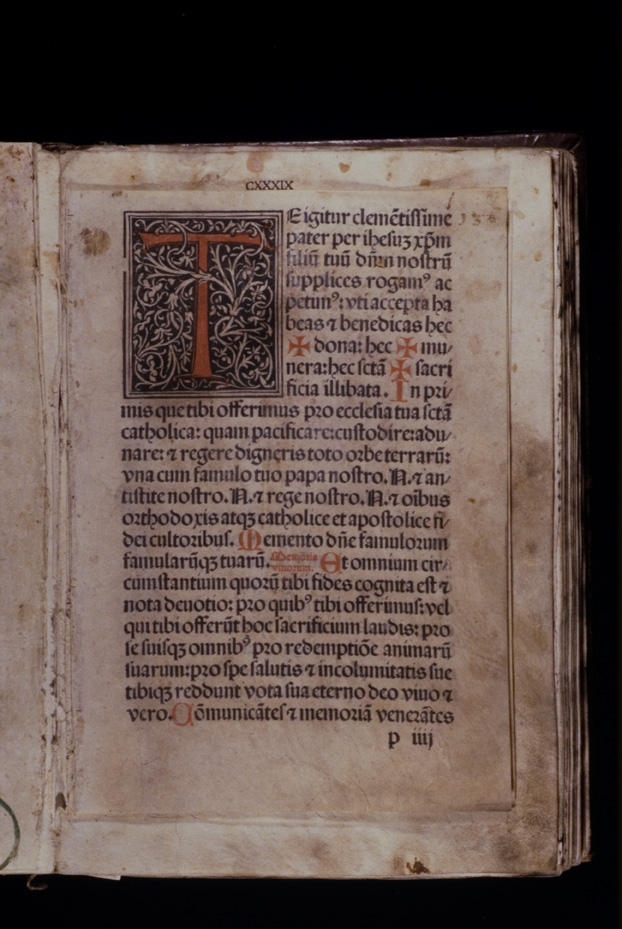 CXXXIX
TE igitur clemẽtissime
pater per ihesuʒ xp̃m
filiũ tuũ dñm nostrũ
supplices rogamꝰ ac
petimꝰ: vti accepta ha
beas ⁊ benedicas hec
✠ dona: hec ✠ mu/
nera: hec sctã ✠ sacri
ficia illibata. In pri/
mis que tibi offerimus pro ecclesia tua sctã
catholica: quam pacificare: custodire: adu/
nare: ⁊ regere digneris toto orbe terrarũ:
vna cum famulo tuo papa nostro. N. ⁊ an/
tistite nostro. N. ⁊ rege nostro. N. ⁊ oĩbus
orthodoxis atqʒ catholice et apostolice fi/
dei cultoribus. Memento dñe famulorum
famularũqʒ tuarũ. Memoria viuorum. Et omnium cir/
cumstantium quorũ tibi fides cognita est ⁊
nota deuotio: pro quibꝰ tibi offerimus: vel
qui tibi offerũt hoc sacrificium laudis: pro
se suisqʒ omnibꝰ pro redemptiõe animarũ
suarum: pro spe salutis ⁊ incolumitatis sue
tibiqʒ reddunt vota sua eterno deo viuo ⁊
vero. Cõmunicãtes ⁊ memoriã venerãtes
p iiij